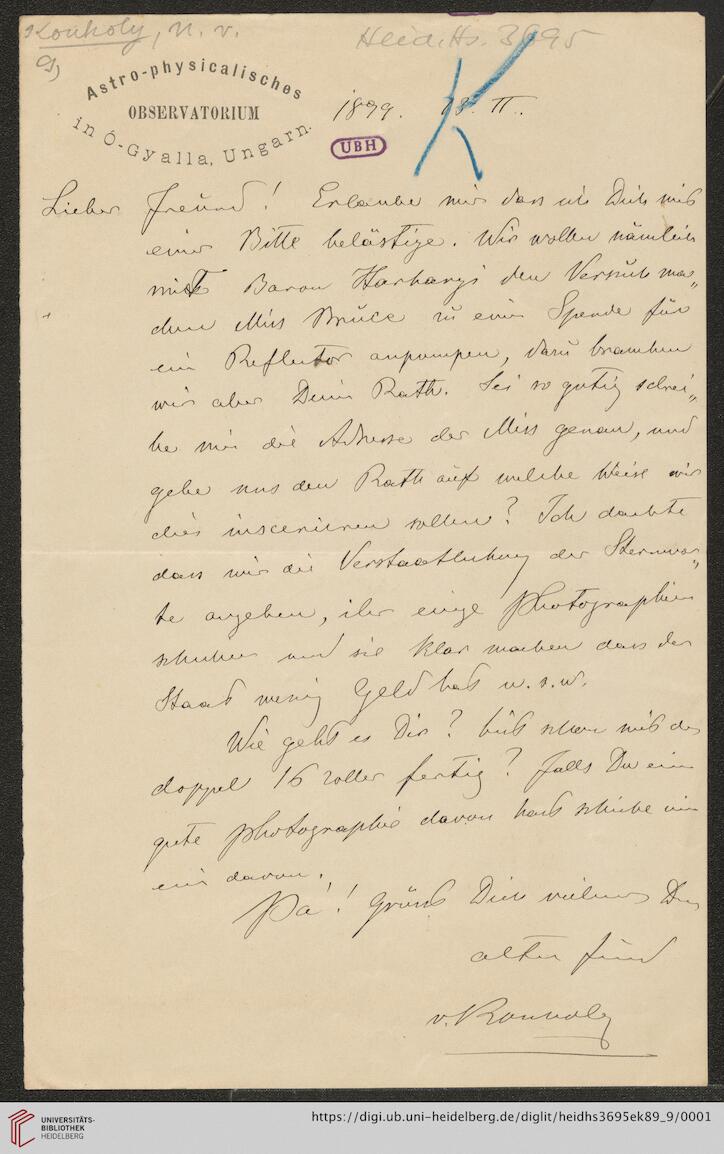 Konkoly, N. v.
Heid. Hs. 3695
9)
Astro-physicalisches
OBSERVATORIUM
in Ó-Gyalla, Ungarn.
1899. 18. II.
UBH
Lieber Freund! Erlaube mir dass ich Dich mit
einer Bitte belästige. Wir wollen nämlich
mit Baron Harkanyi den Versuch ma„
chen Miss Bruce zu einer Spende für
ein Reflector anpumpen, dazu brauchen
wir aber Dein Rath. Sei so gutig schrei„
be mir die Adresse der Miss genau, und
gebe uns den Rath auf welche Weise wir
dies insceniren sollen? Ich dachte
dass wir die Verstaatlichung der Sternwar„
te angeben, ihr einige Photographien
schicken und sie klar machen dass der
Staat wenig Geld hat u. s. w.
Wie geht es Dir? bist schon mit den
doppel 16 zoller fertig? falls Du eine
gute photographie davon hast schicke mir
ein davon.
Pá! Grüsst Dich vielmals Dein
alter freund
v. Konkoly
UNIVERSITÄTS-
BIBLIOTHEK
HEIDELBERG
https://digi.ub.uni-heidelberg.de/diglit/heidhs3695ek89_9/0001